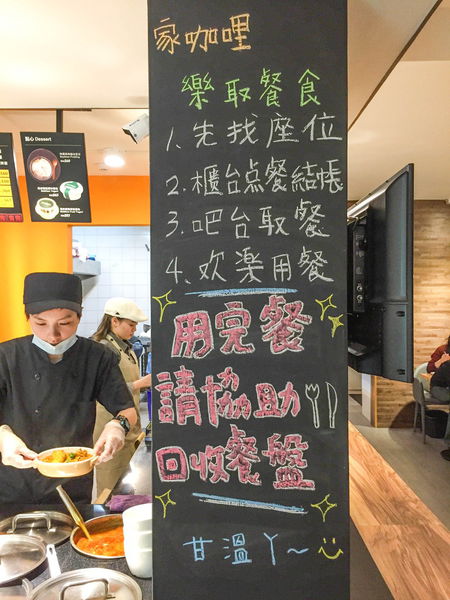 家咖哩
樂取餐食
1.先找座位
2.櫃台点餐結帳
3.吧台取餐
4.欢楽用餐
用完餐
請協助
回收餐盤
甘溫丫~
點心 Dessert